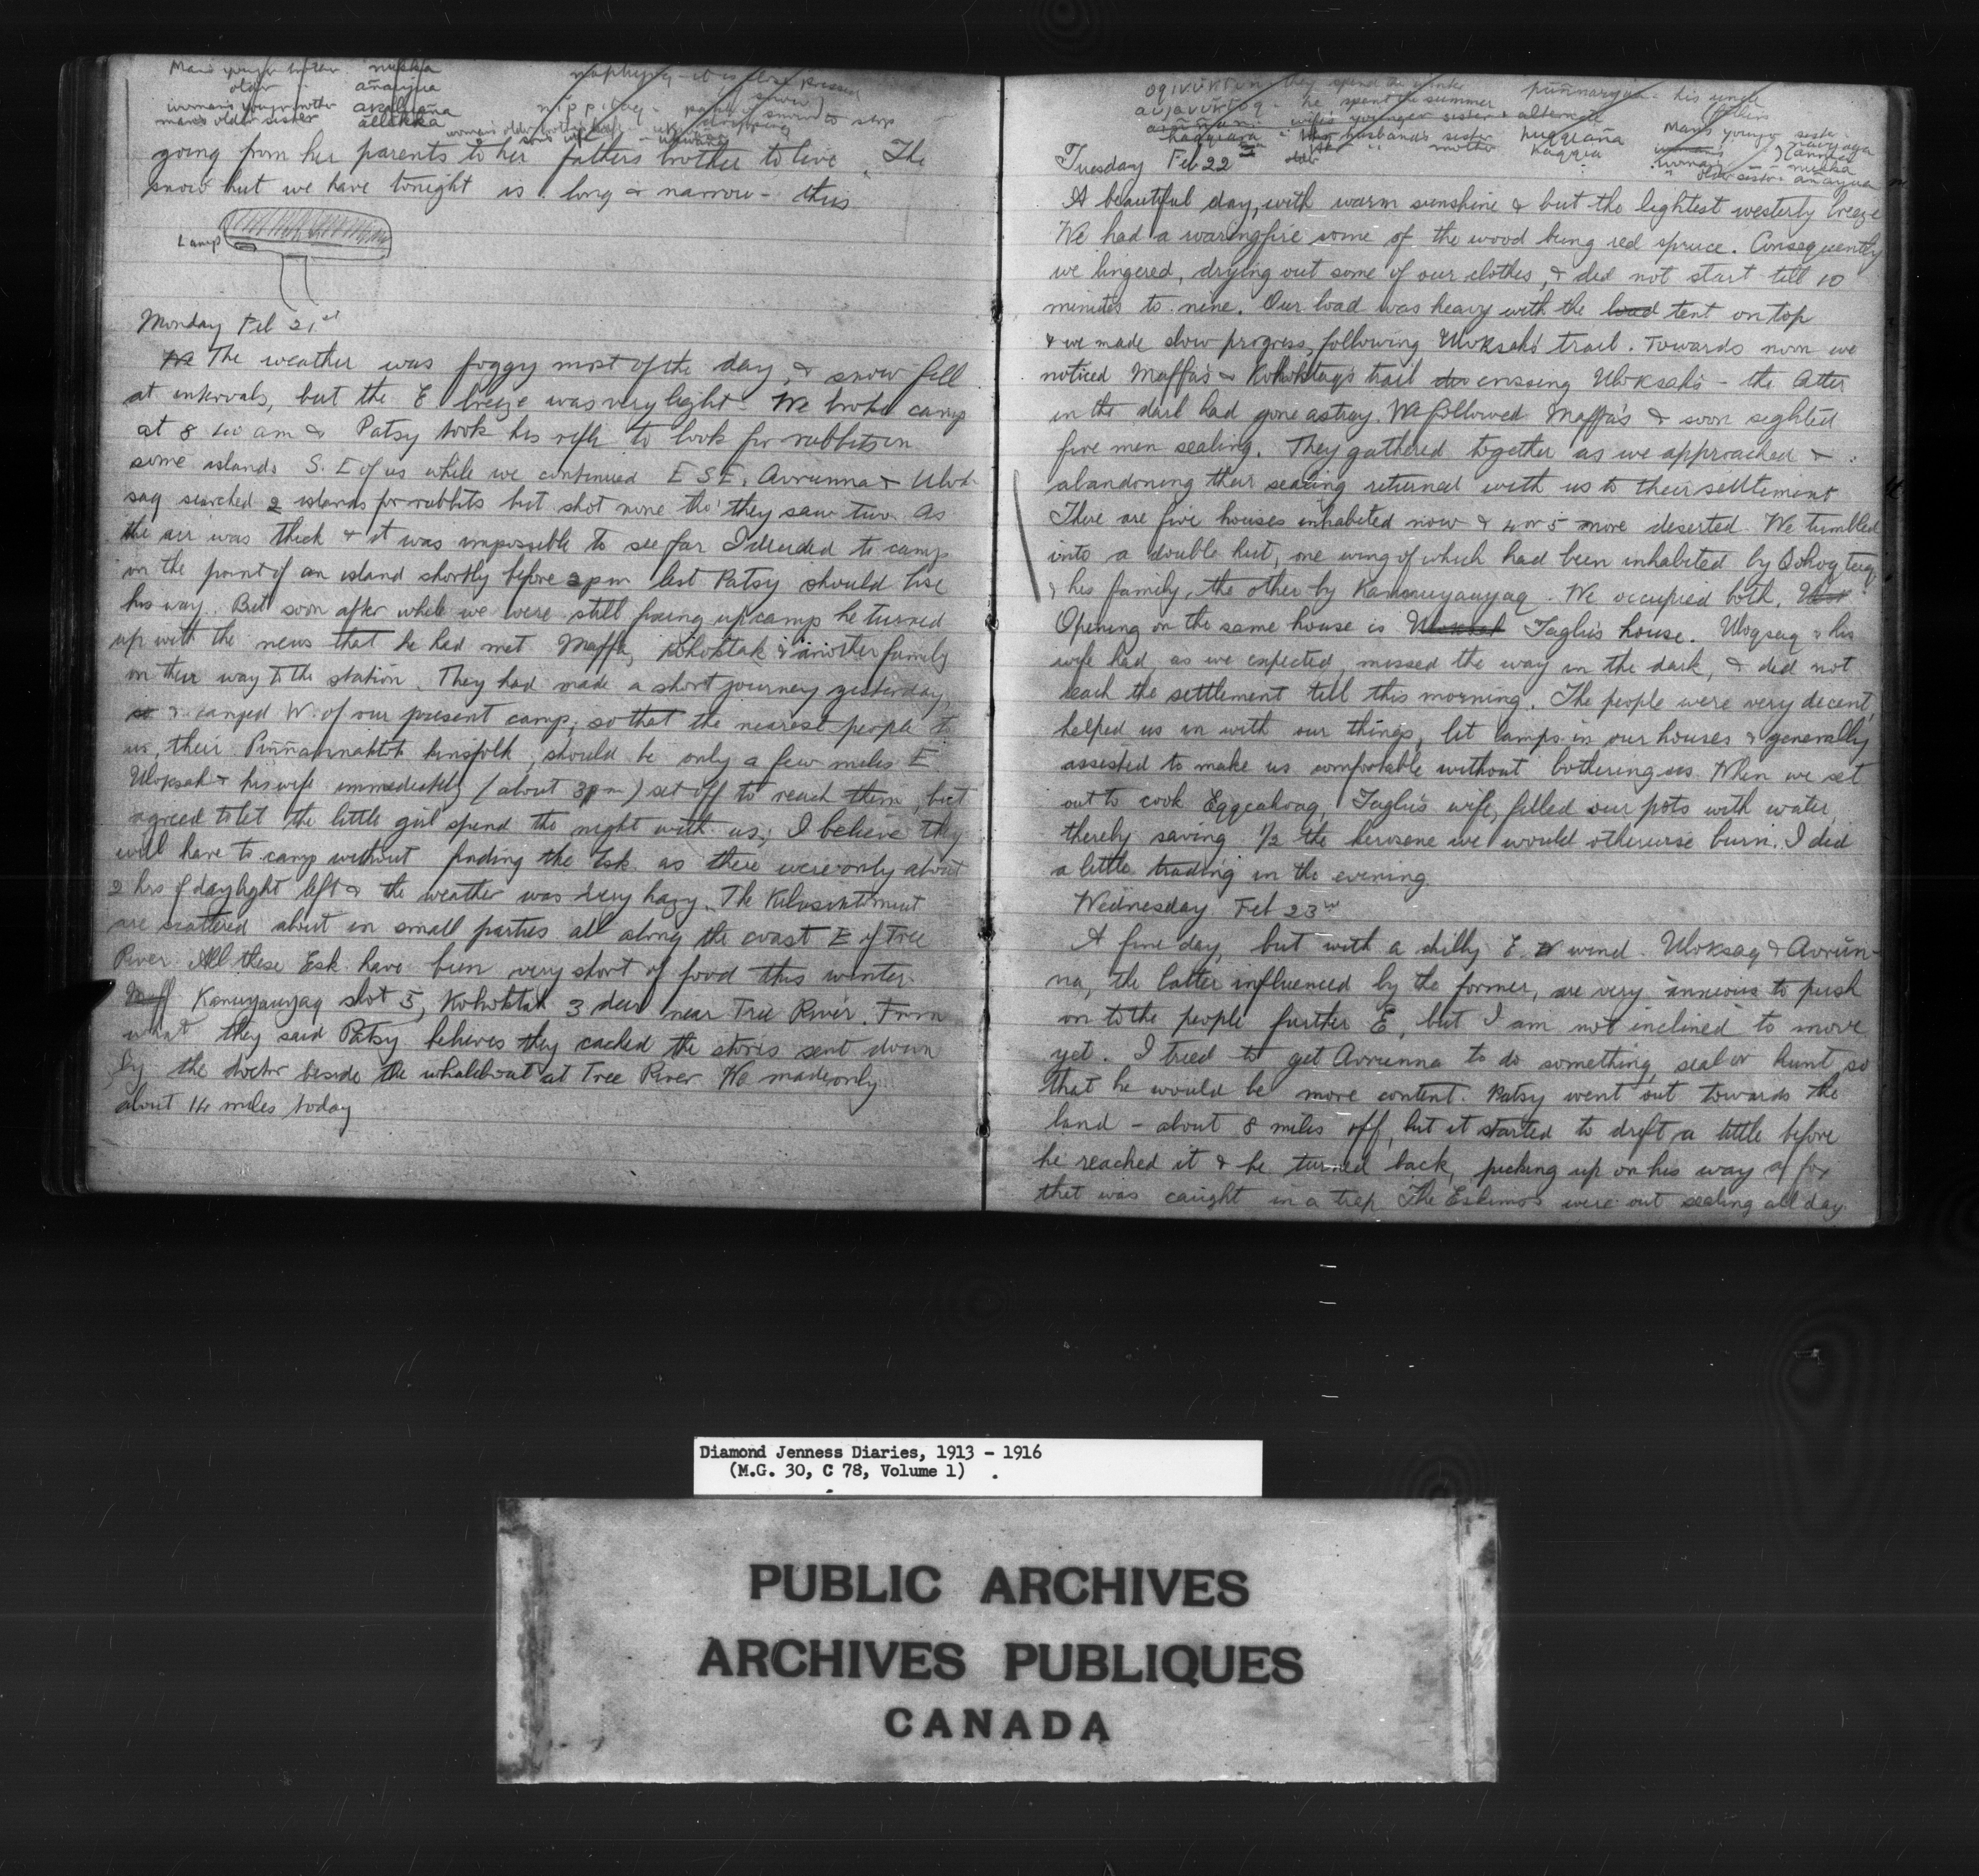 Man's younger brother nukka
older " añaryua
woman's younger brother akaluaña
man's older sister allekka
going from her parents to her father's brother to live. The
snow hut we have tonight is long & narrow - thus
Lamp
Monday Feb 21st
We The weather was foggy most of the day, & snow fell
at intervals, but the E breeze was very light. We broke camp
at 8 40 am & Patsy took his rifle to look for rabbits on
some islands S.E of us while we continued E S E. Avrunna & Ulok-
saq searched 2 islands for rabbits but shot none tho' they saw two. As
the air was thick & it was impossible to see far I decided to camp
on the point of an island shortly before 2 pm lest Patsy should lose
his way. But soon after while we were still fixing up camp he turned
up with the news that he had met Maffa, Kohoktak & another family
on their way to the station. They had made a short journey yesterday,
so & camped W. of our present camp; so that the nearest people to
us, their Piññannaktok kinsfolk, should be only a few miles E.
Uloksak & his wife immediately (about 3 pm) set off to reach them, but
agreed to let the little girl spend the night with us; I believe they
will have to camp without finding the Esk. as there were only about
2 hrs of daylight left & the weather was very hazy. The Kilusiktomiut
are scattered about in small parties all along the coast E of Tree
River. All these Esk. have been very short of food this winter.
Maff Kanuyauyaq shot 5, Kohoktak 3 deer near Tree River. From
what they said Patsy believes they cached the stores sent down
by the doctor beside the whaleboat at Tree River. We made only
about 14 miles today
oqivuktun they spend the winter
aujavuktoq - he spent the summer
puññaryua - his uncle
wife's younger sister & alternate
haqqiaña - his husband's sister huqqiaña
" " mother kaqqia
Man's younger sister - nayaga
older sister añaryua
Tuesday Feb 22
A beautiful day, with warm sunshine & but the lightest westerly breeze
We had a roaring fire some of the wood being red spruce. Consequently
we lingered, drying out some of our clothes, & did not start till 10
minutes to nine. Our load was heavy with the load tent on top
& we made slow progress, following Uloksak's trail. Towards noon we
noticed Maffa's & Kohoktaq's trail crossing Uloksak's - the latter
in the dark had gone astray. We followed Maffa's & soon sighted
five men sealing. They gathered together as we approached &
abandoning their sealing returned with us to their settlement
There are five houses inhabited now & 4 or 5 more deserted. We tumbled
into a double hut, one wing of which had been inhabited by Qohoqtaq
& his family, the other by Kanuuyauyaq. We occupied both.
Opening on the same house is Uloksak Taglu's house. Uloqsaq & his
wife had, as we expected, missed the way in the dark, & did not
reach the settlement till this morning. The people were very decent,
helped us in with our things, lit lamps in our houses & generally
assisted to make us comfortable without bothering us. When we set
out to cook Eqqcahoaq, Taglu's wife, filled our pots with water,
thereby saving 1/2 the kerosene we would otherwise burn. I did
a little trading in the evening.
Wednesday Feb 23rd
A fine day, but with a chilly E. wind. Uloksaq & Avrŭn-
na, the latter influenced by the former, are very anxious to push
on to the people further E, but I am not inclined to move
yet. I tried to get Avrunna to do something, seal or hunt, so
that he would be more content. Patsy went out towards the
land - about 8 miles off, but it started to drift a little before
he reached it & he turned back, picking up on his way a fox
that was caught in a trap. The Eskimos were out sealing all day.
Diamond Jenness Diaries, 1913 - 1916
(M.G. 30, C 78, Volume 1) .
PUBLIC ARCHIVES
ARCHIVES PUBLIQUES
CANADA